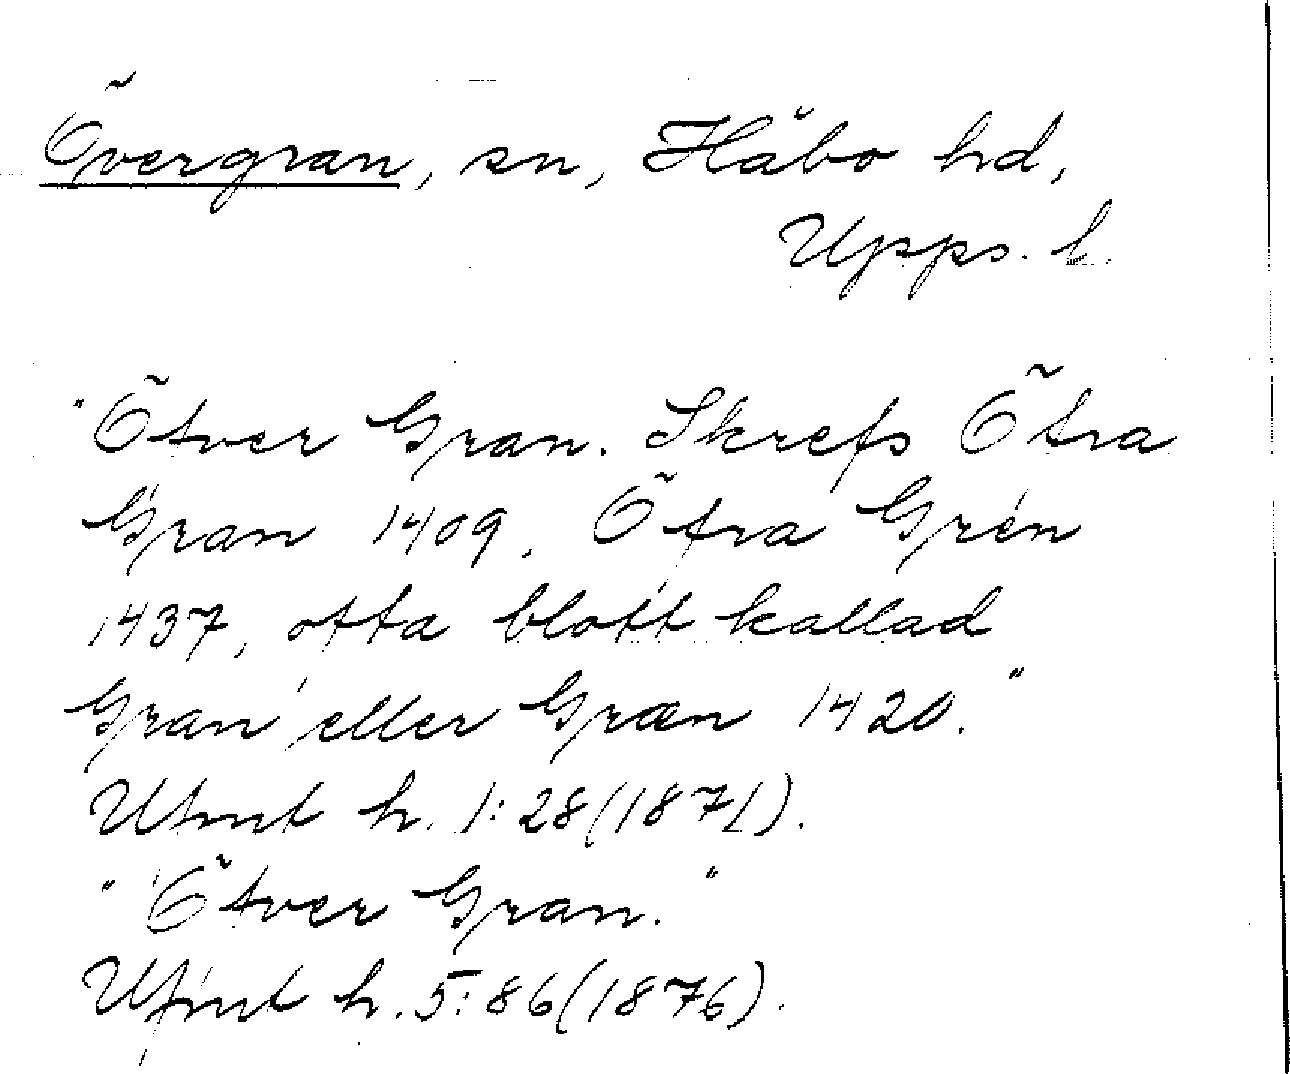 Övergran, sn, Håbo hd,
Upps. l.
"Öfver Gran. Skrefs Öfra
Gran 1409. Öfra Grén
1437, ofta blott kallad
Gran eller Græn 1420."
Ufmt h. 1:28(1871).
"Öfver Gran."
Ufmt h. 5:86(1876).